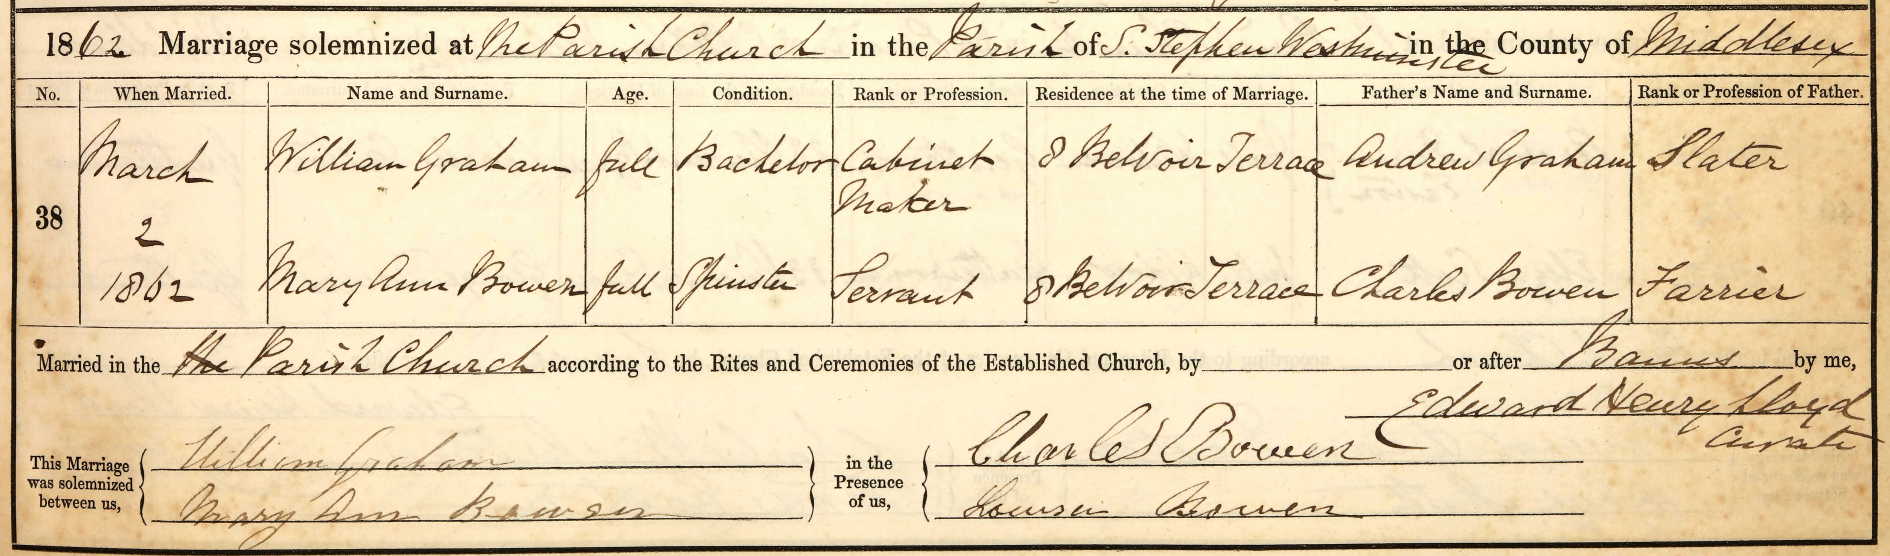 1862 Marriage solemnized at The Parish Church in the Parish of S. Stephen Westminster in the County of Middlesex
No. When Married. Name and Surname. Age. Condition. Rank or Profession. Residence at the time of Marriage. Father's Name and Surname. Rank or Profession of Father.
March William Graham full Bachelor Cabinet 8 Belvoir Terrace Andrew Graham Slater
Maker
38
2
1862 Mary Ann Bowen full Spinster Servant 8 Belvoir Terrace Charles Bowen Farrier
Married in the the Parish Church according to the Rites and Ceremonies of the Established Church, by or after Banns by me,
Edward Henry Lloyd
Curate
This Marriage was solemnized between us,
William Graham
Mary Ann Bowen
in the Presence of us,
Charles Bowen
Louisa Bowen